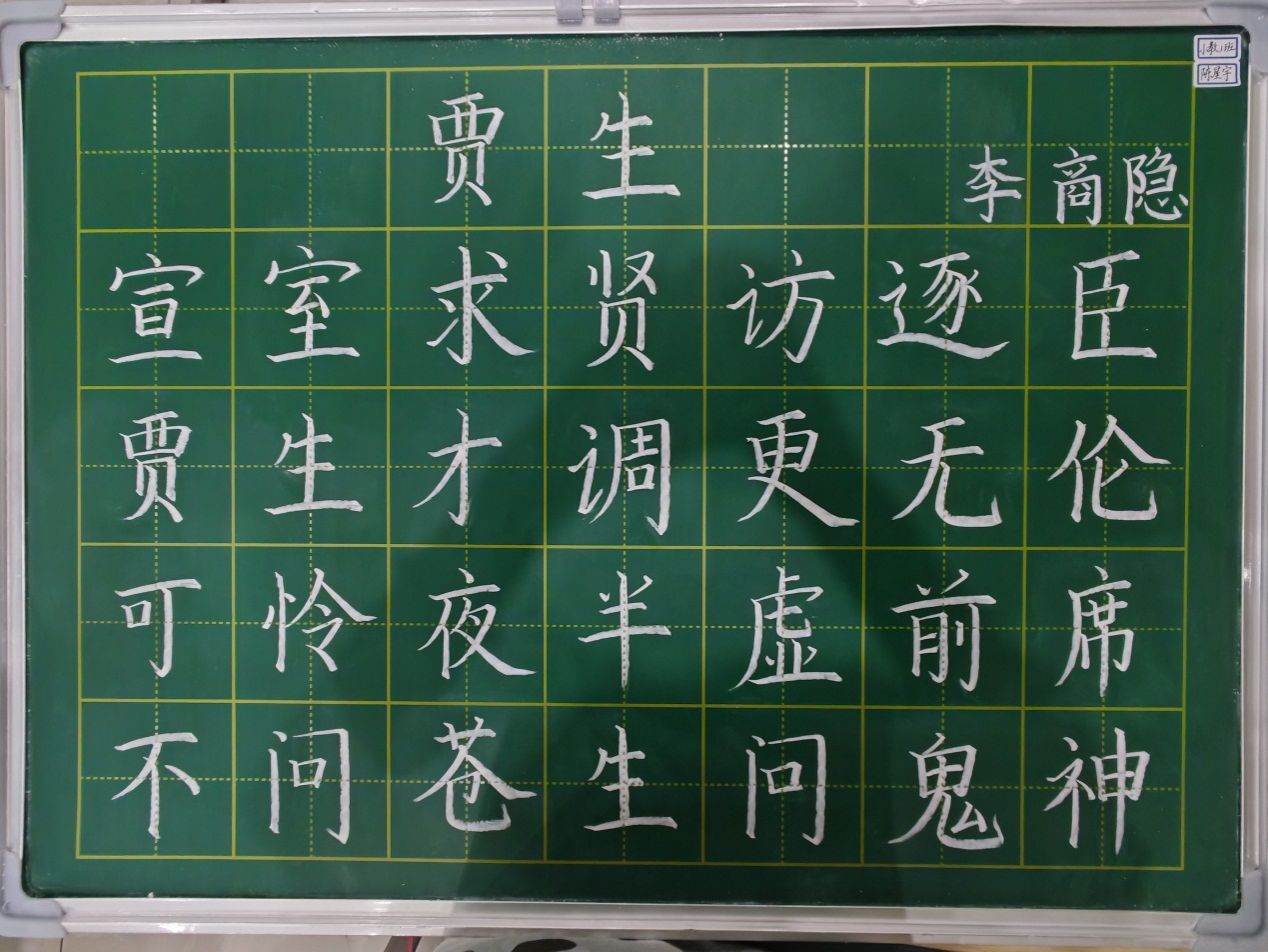 小教1班
陈星宇
贾生
李商隐
宣室求贤访逐臣
贾生才调更无伦
可怜夜半虚前席
不问苍生问鬼神